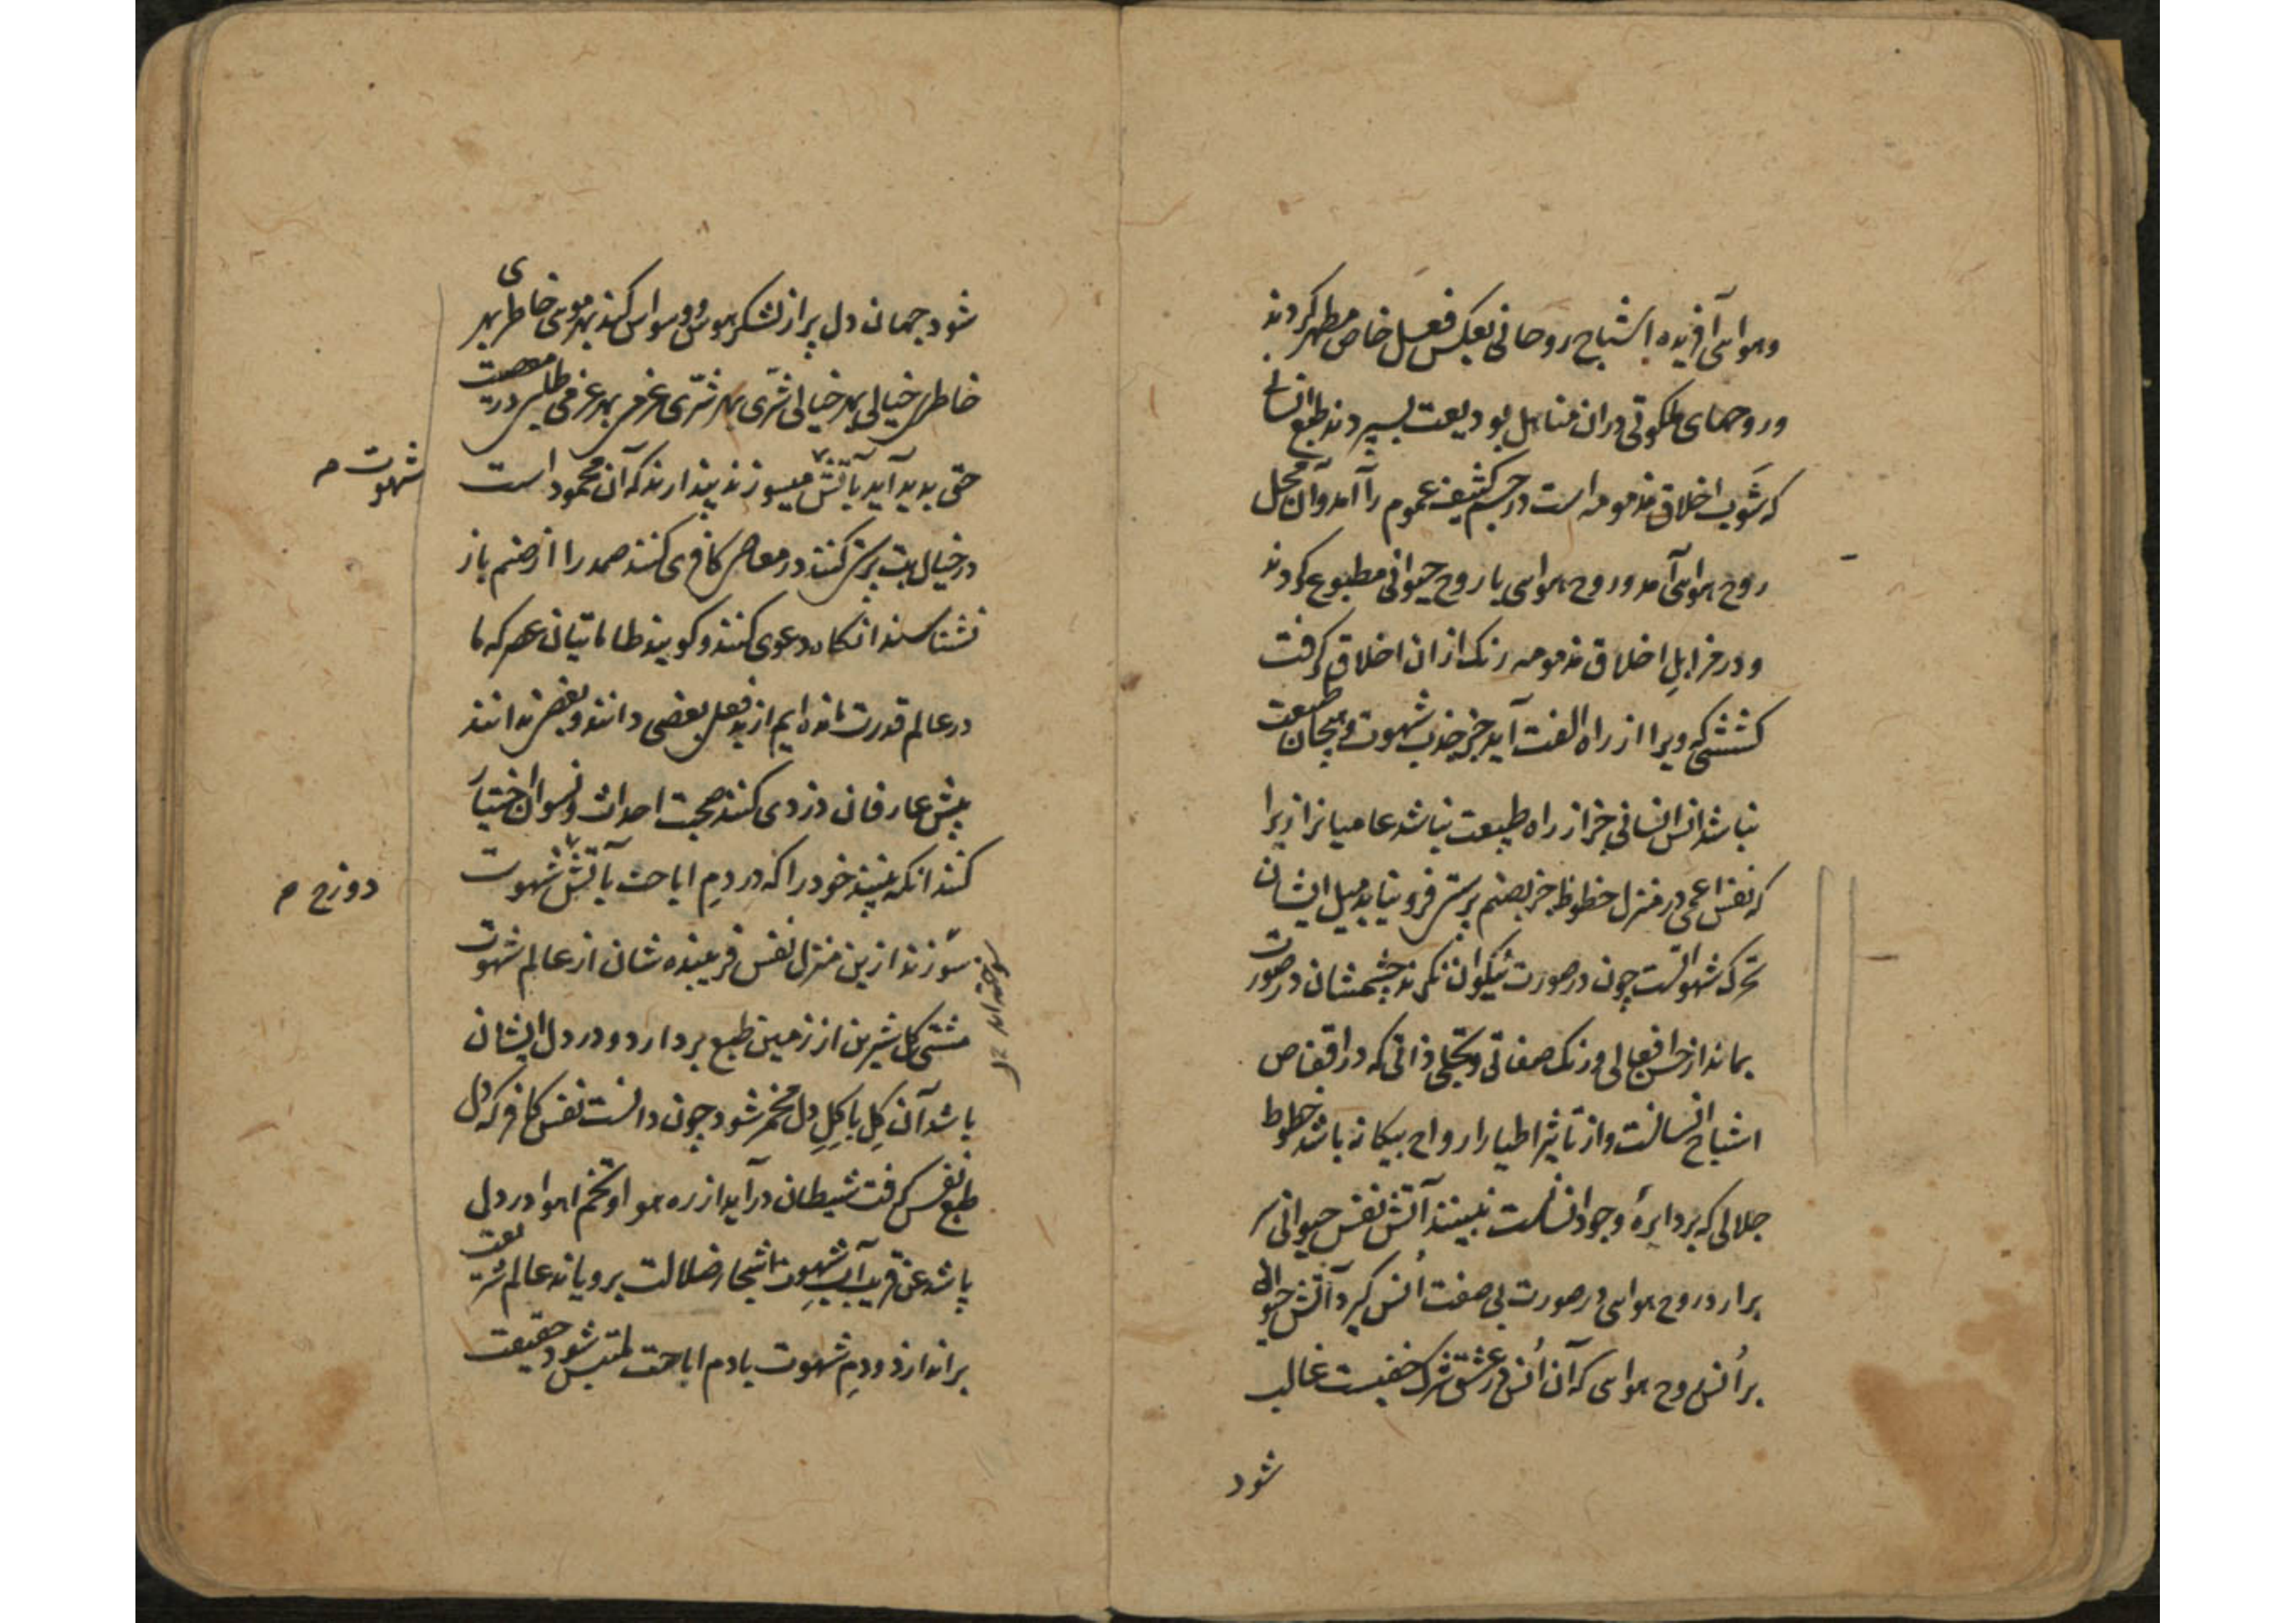 وهوا سی آفریده اشباح روحانی بعکس فعل خاص مطهر کردند
وروحهای ملکوتی دران مناهل بودیعت بسپردند طبع انسانی
که شوب اخلاق مذمومه است در جسم کثیف عموم را آمد و آن محل
روح هواسی آمد و روح هواسی با روح حیوانی مطبوع کردند
و در مزابل اخلاق مذمومه رنک ازان اخلاق کرفت
کششی که ویرا از راه الفت آید جز جذب شهوت و هیجان طبیعت
نباشد انس انسانی جز از راه طبیعت نباشد عامیانرا زیرا
که نفس اعمی در منزل حظوظ جز بصنم پرستی فرو نیاید میل ایشان
تحرک شهواتست چون در صورت نیکوان نکرند چشمشان در صورت
بماند از حسن افعالی و رنک صفاتی و تجلی ذاتی که در اقفاص
اشباح انسانست و از تاثیر اطیار ارواح بیکانه باشد خطوط
جلالی که بر دایرهٔ وجود انسانست نبینند آتش نفس حیوانی سر
برارد روح هواسی در صورت بی صفت اُنس کیرد آتش حیوانی
بر اُنس روح هواسی که آن اُنس در عشق شرک خفیست غالب
شود
شود جهان دل پر از لشکر هوس و وسواس کنند بهر هوسی خاطری بهر
خاطری خیالی بهر خیالی شری بهر شری عزمی بهر عزمی طلبی در معصیت
حق پدید آید بآتش میسوزند پندارند که آن محمود است
شهوت م
در خیال بت پرستی کنند در معاصی کافری کنند صمد را از صنم باز
نشناسند انکاه دعوی کنند و کویند طاماتیان عصر که ما
در عالم قدرت مانده ایم از بد فعل بعضی دانند و بعضی ندانند
پیش عارفان دزدی کنند صحبت احداث و نسوان اختیار
کنند انکه ببینند خود را که در دم اباحت بآتش شهوت
دوزخ م
سوزند ازین منزل نفس فریبنده شان از عالم شهوت
سوخته اند
مشتی کل شیرین از زمین طبع بردارد و در دل ایشان
باشد آن کِل با کِلِ دل مخمر شود چون دانست نفس کافر که دل
طبع نفس کرفت شیطان درآید از ره هوا و تخم اهوا در دل
پاشد عن قریب آب شهوت اشجار ضلالت برویاند عالم شریعت
براندازد و دم شهوت با دم اباحت ملتبس شود حقیقت